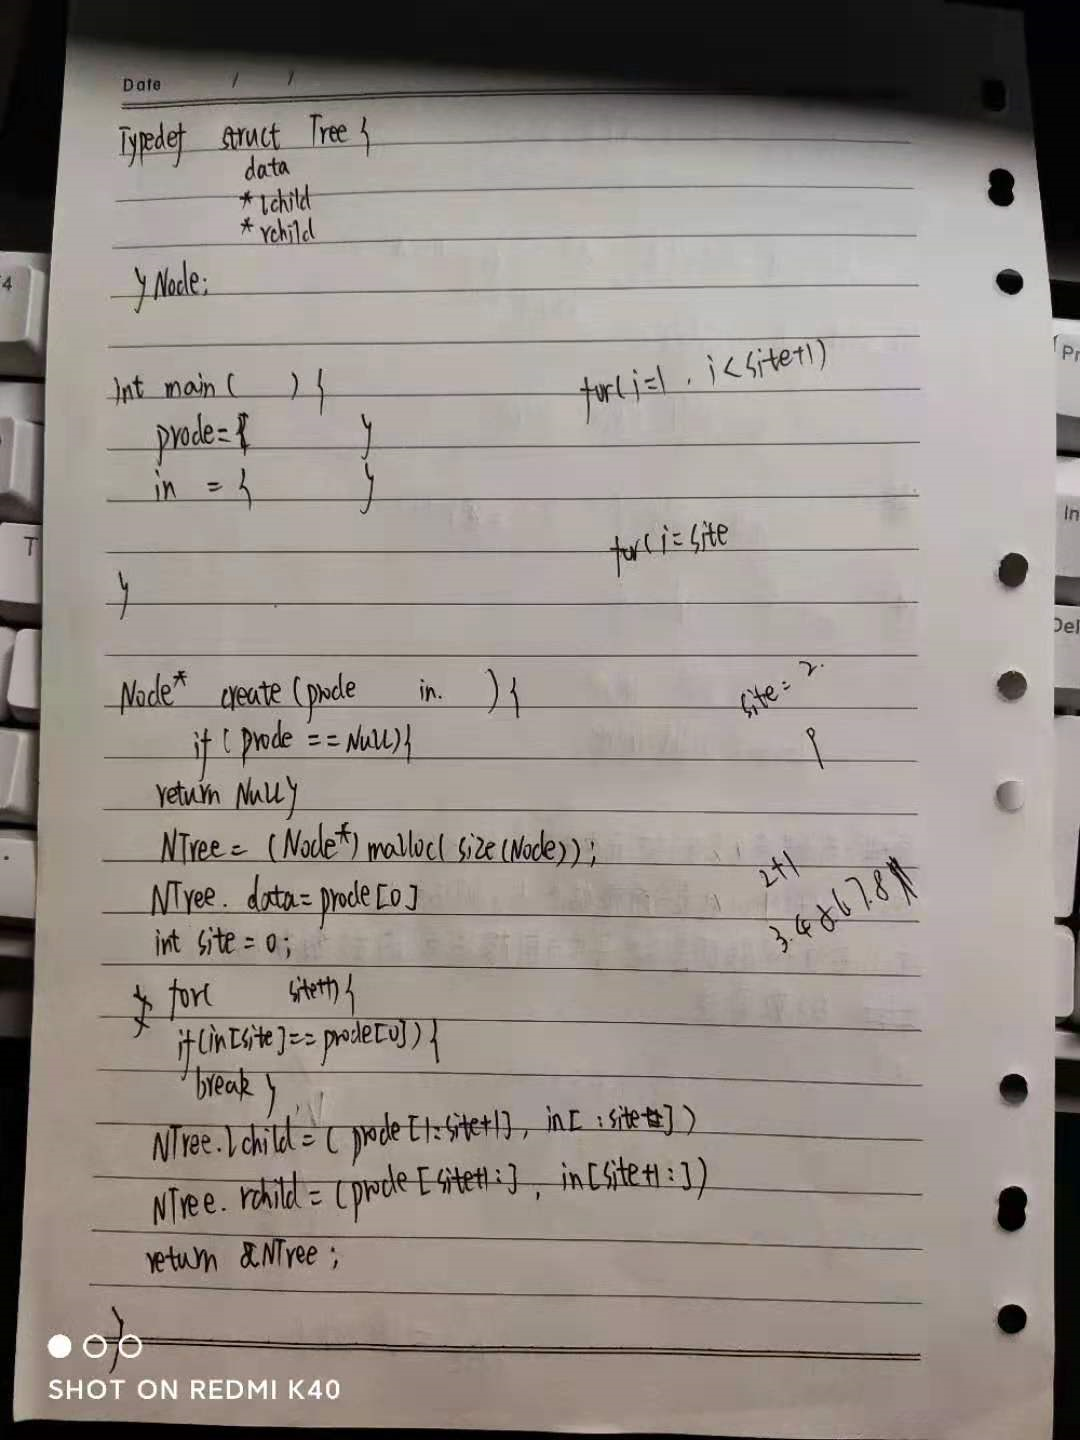 Date / /
Typedef struct Tree {
data
*lchild
*rchild
} Node;
int main ( ) {
for(i=1 , i<site+1)
prode={ }
in = { }
for(i=site
}
Node* create (prode in. ) {
site = 2.
if ( prode == NULL){
return NULL}
NTree = (Node*) malloc( size(Node));
2+1
NTree. data= prode[0]
int site = 0;
for( site++){
if(in[site]== prode[0]){
break }
NTree.lchild = ( prode [1:site+1], in[ :site])
NTree. rchild = (prode [site+1:], in[site+1:])
return &NTree ;
}
SHOT ON REDMI K40
F4
T
Pr
In
Del